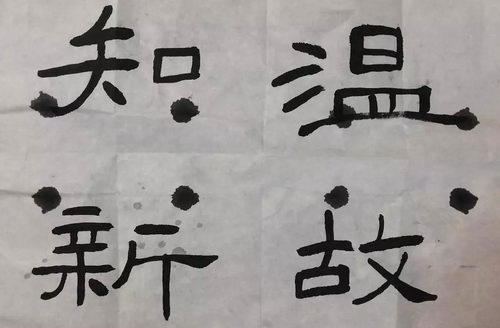 温故
知新